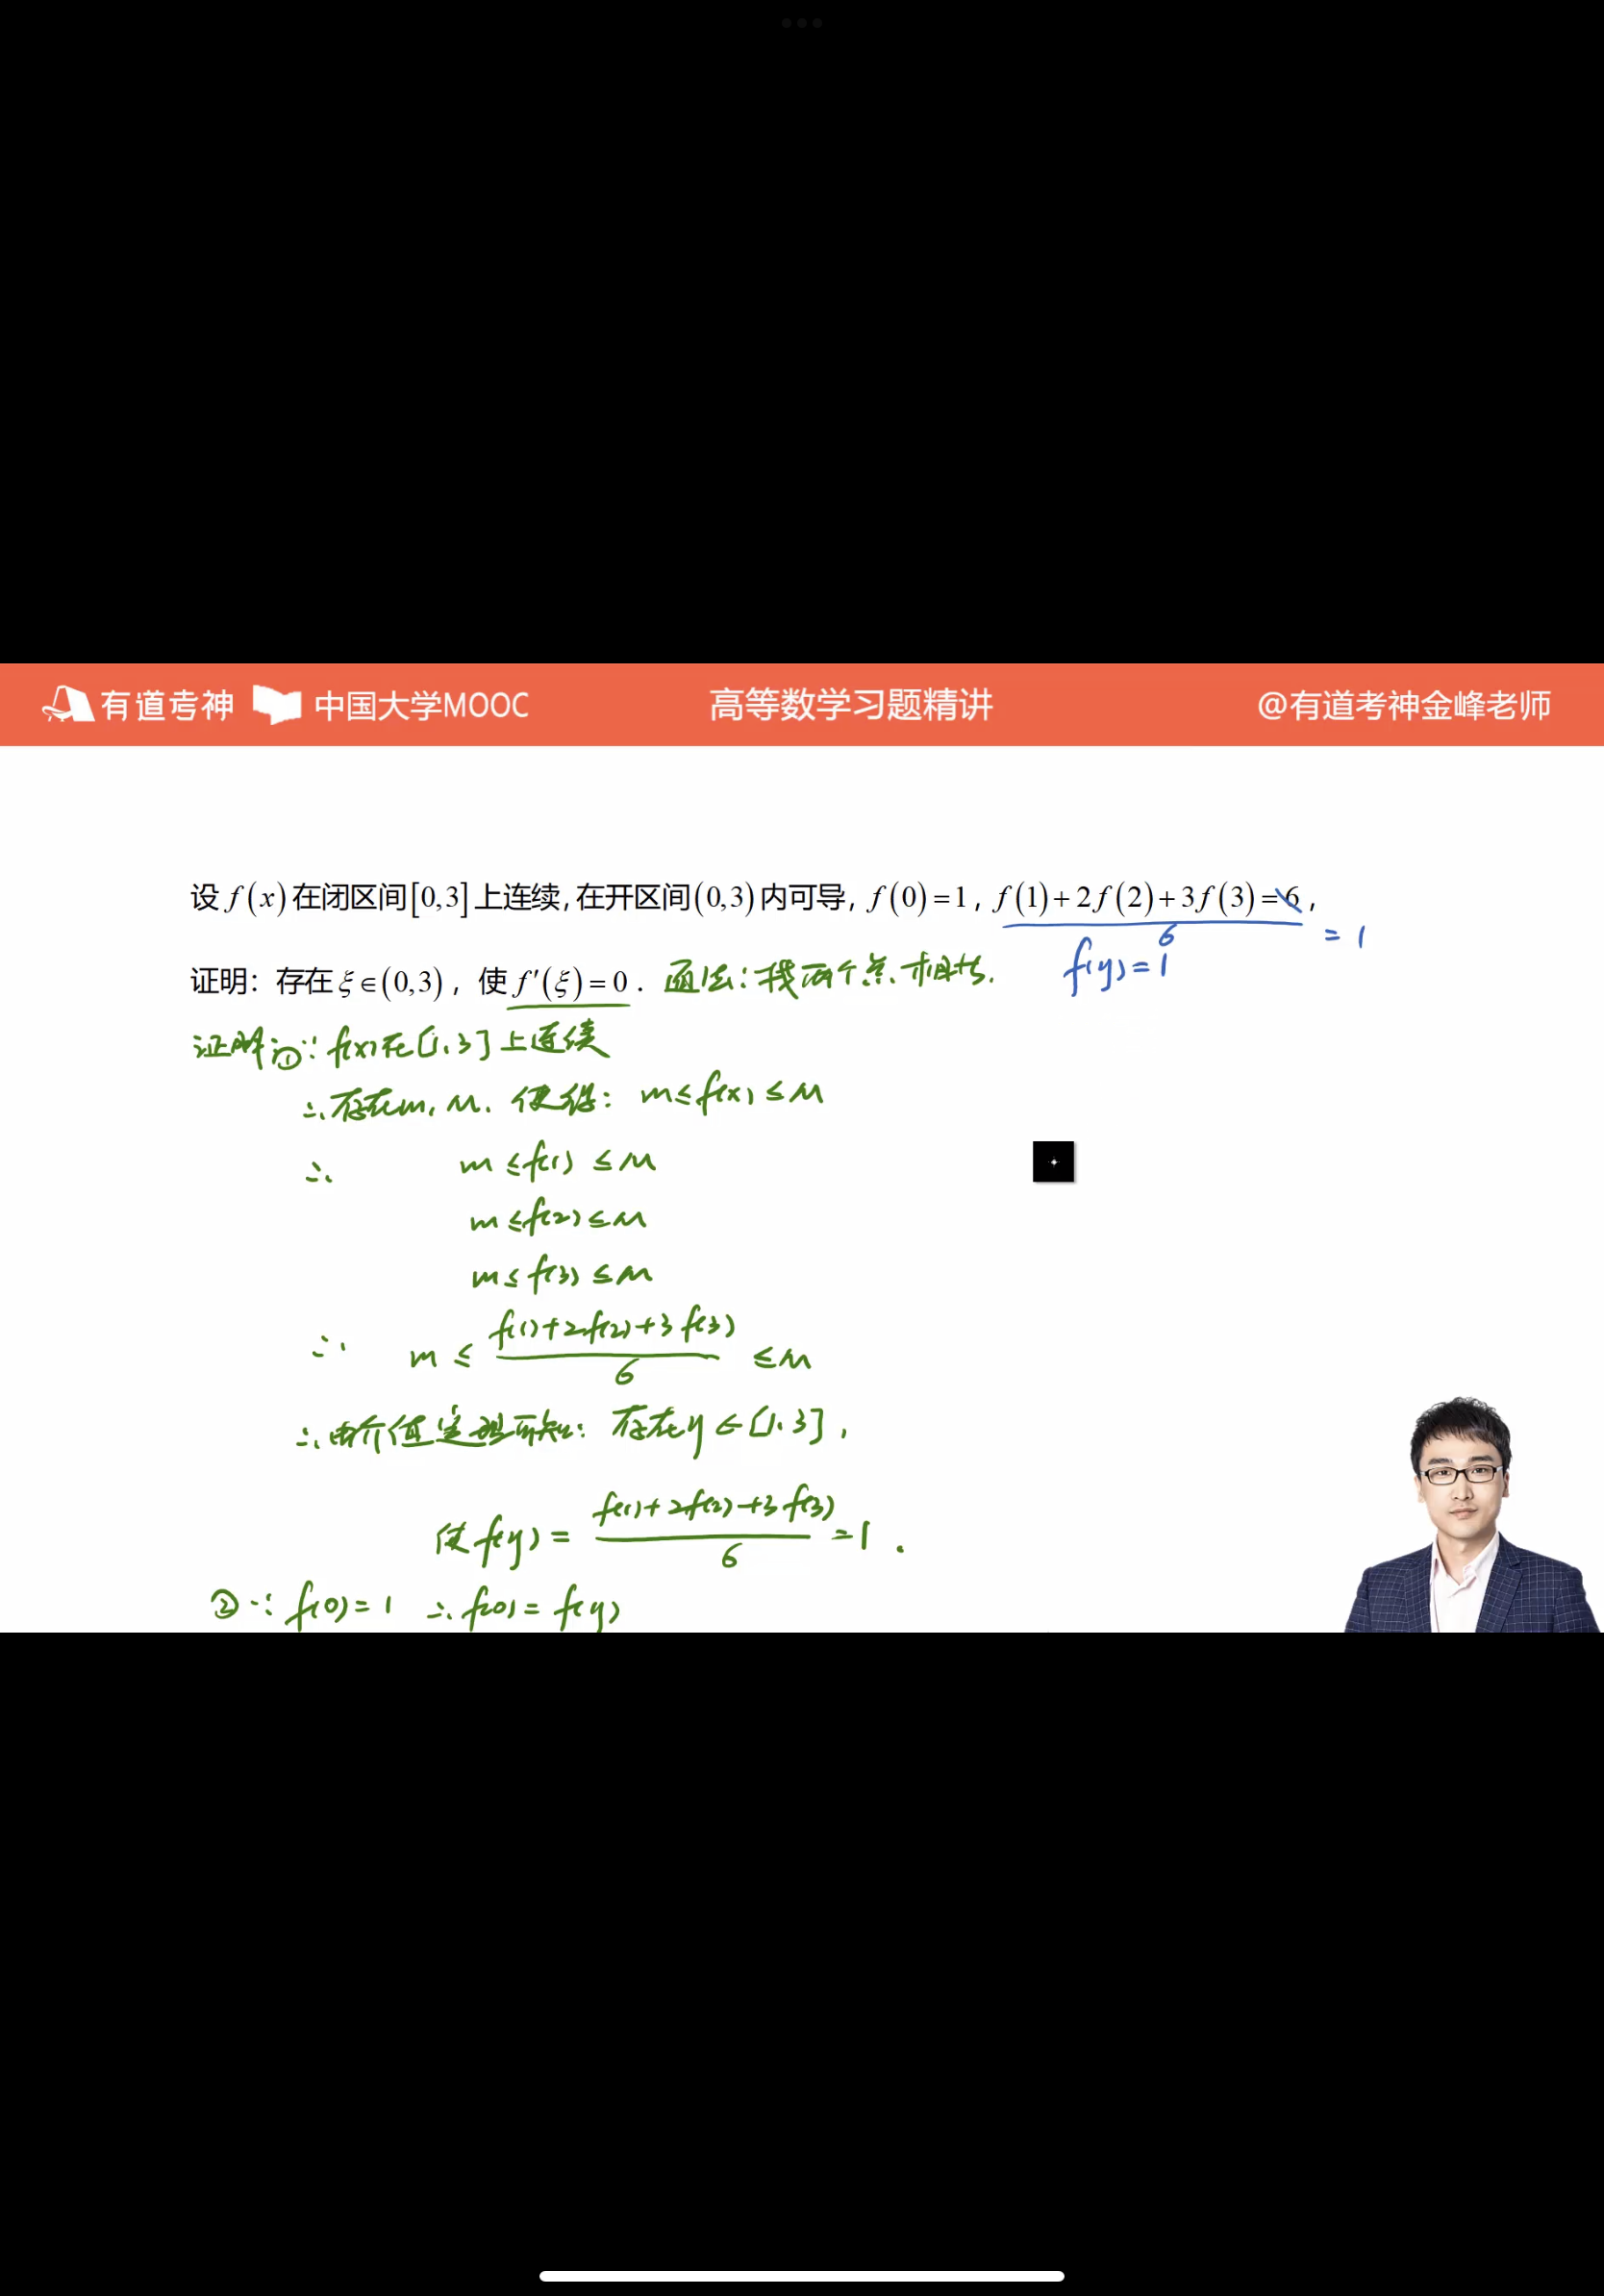 有道考神 中国大学MOOC 高等数学习题精讲 @有道考神金峰老师
设 f(x) 在闭区间[0,3]上连续,在开区间(0,3)内可导, f(0)=1, f(1)+2f(2)+3f(3)=6,
6 = 1
证明：存在ξ∈(0,3)，使 f′(ξ)=0. 画法:找两个点相等. f(y)=1
证明:①∵ f(x)在[1,3]上连续
∴存在m,M.使得: m≤f(x)≤M
∴ m≤f(1)≤M
m≤f(2)≤M
m≤f(3)≤M
∴ m≤ f(1)+2f(2)+3f(3) / 6 ≤M
∴由介值定理可知: 存在y∈[1,3],
使f(y)= f(1)+2f(2)+3f(3) / 6 =1.
②∵ f(0)=1 ∴f(0)=f(y)